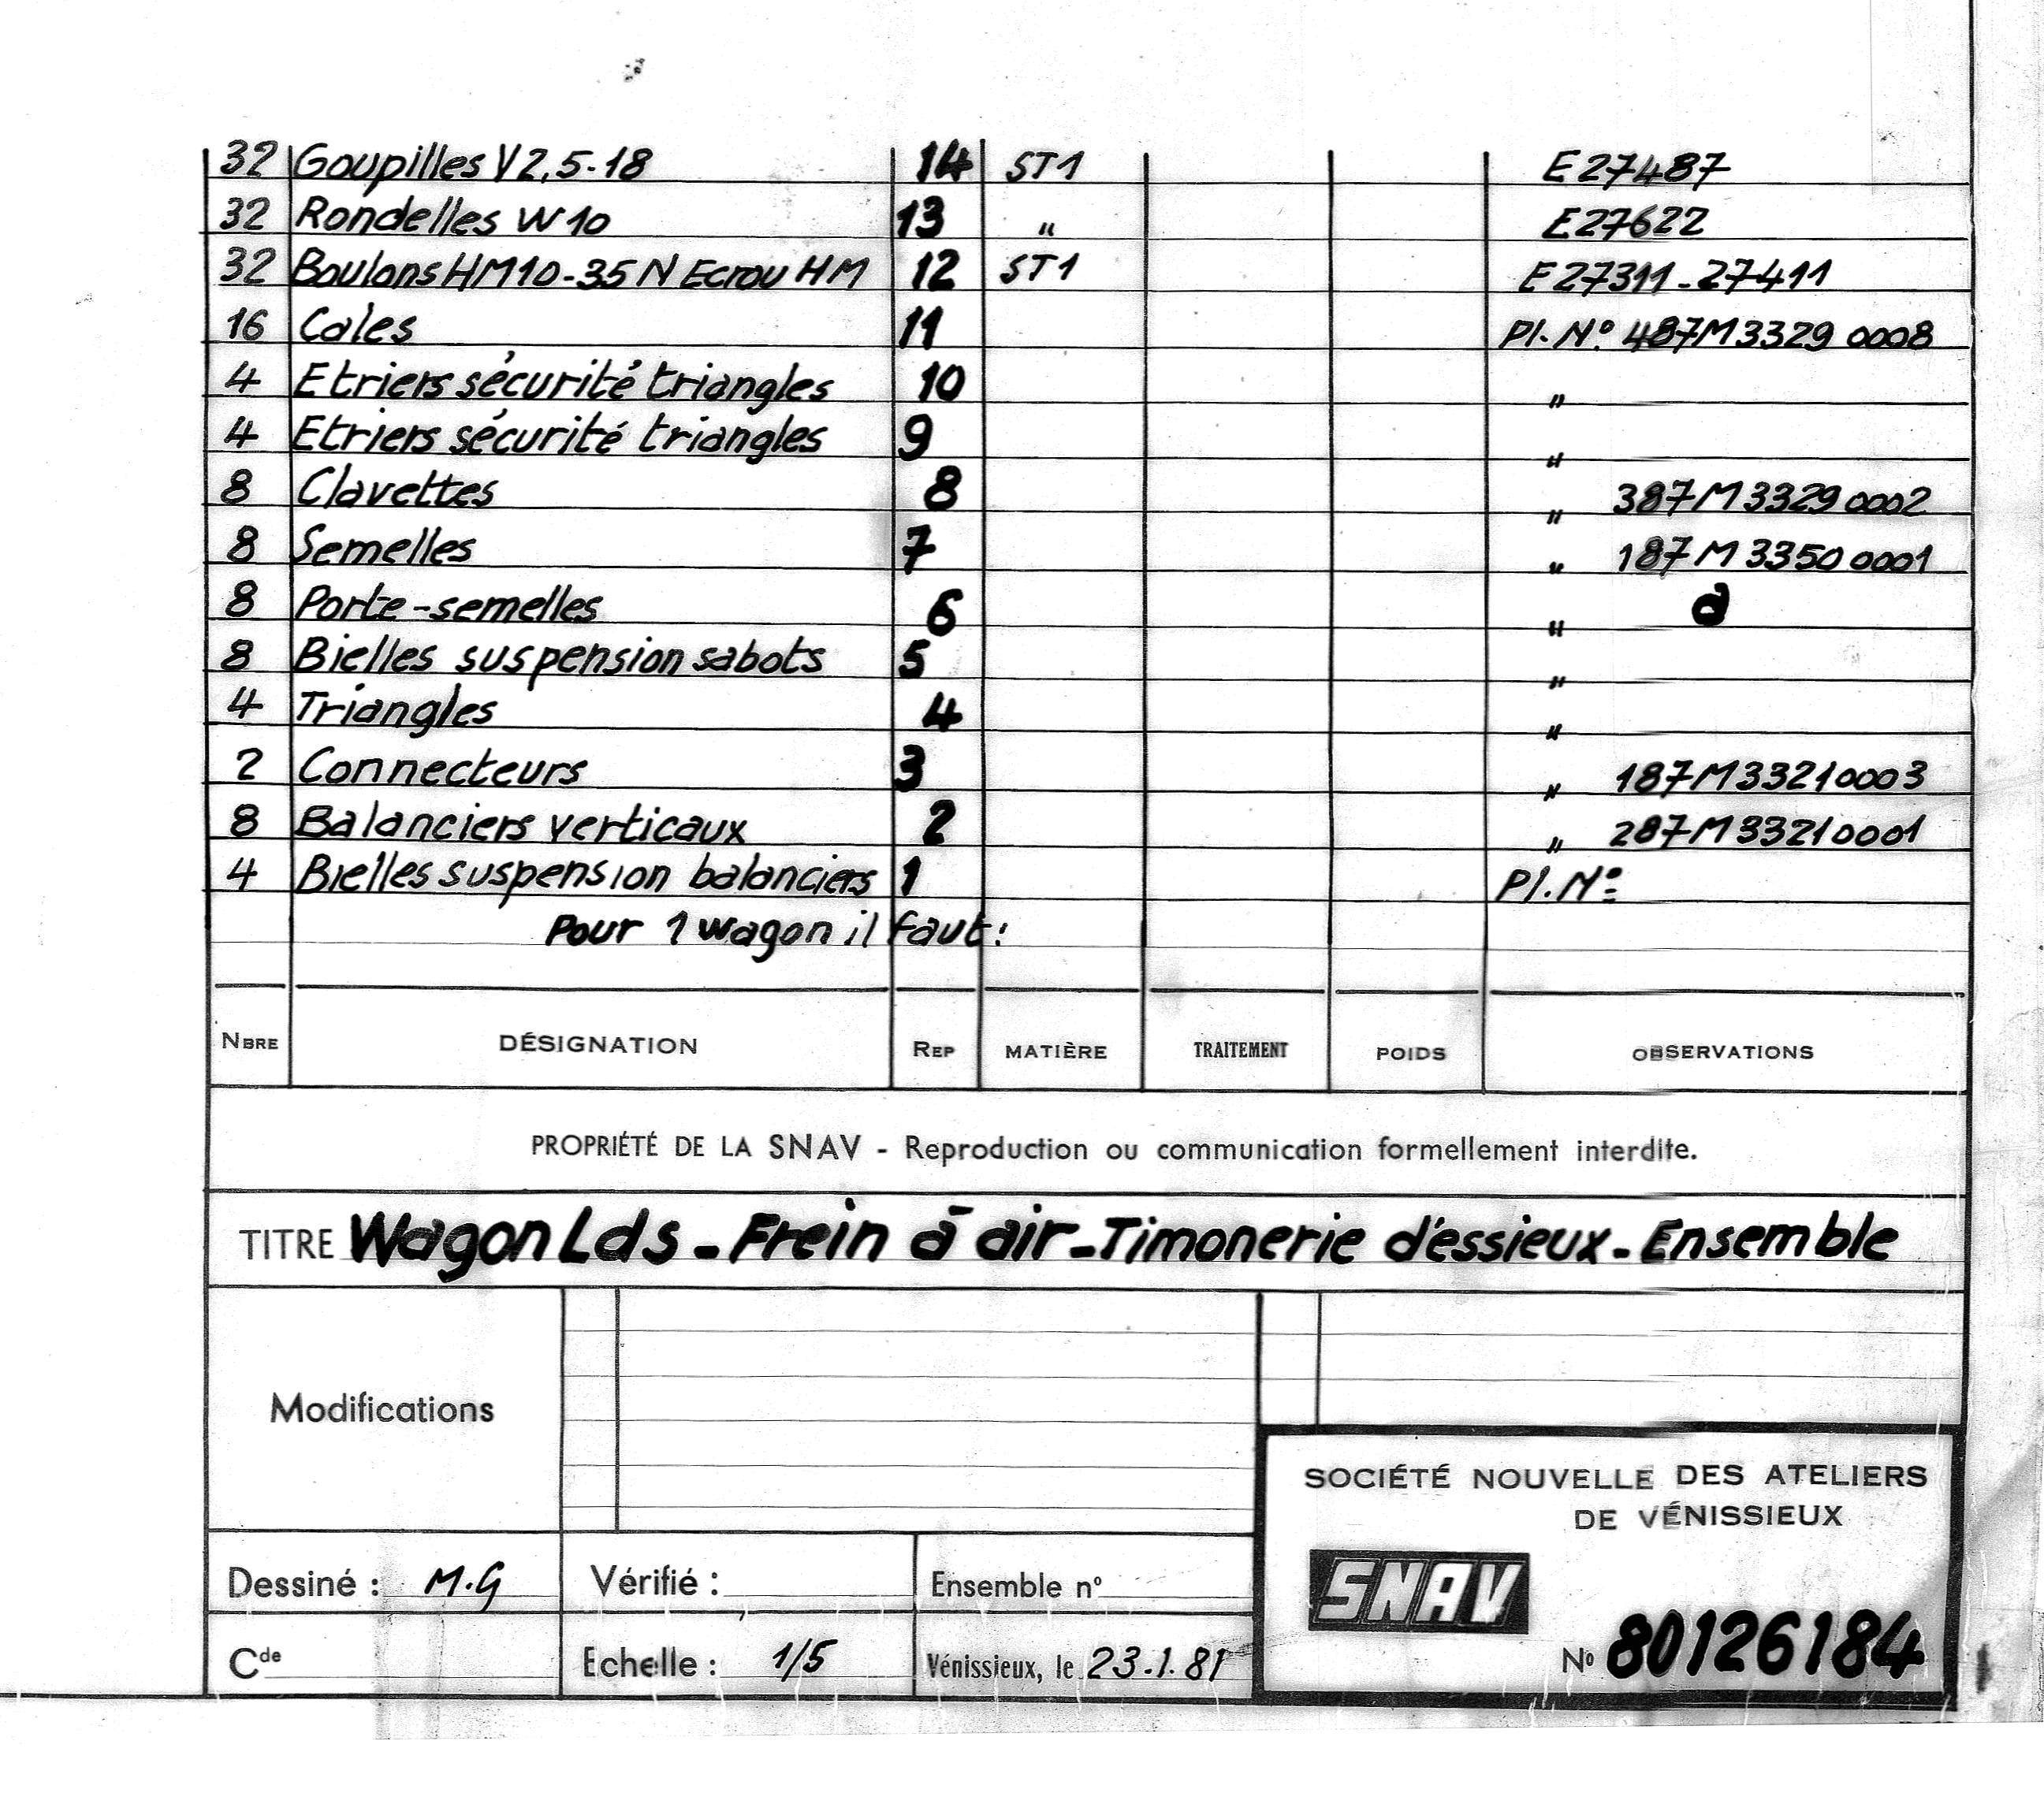 32 Goupilles V2,5-18 14 ST1 E27487
32 Rondelles W10 13 " E27622
32 Boulons HM10-35 N Ecrou HM 12 ST1 E27311-27411
16 Cales 11 Pl. N° 487M3329 0008
4 Etriers sécurité triangles 10 "
4 Etriers sécurité triangles 9 "
8 Clavettes 8 " 387M3329 0002
8 Semelles 7 " 187M3350 0001
8 Porte-semelles 6 " d
8 Bielles suspension sabots 5 "
4 Triangles 4 "
2 Connecteurs 3 " 187M33210003
8 Balanciers verticaux 2 " 287M33210001
4 Bielles suspension balanciers 1 Pl. N°
Pour 1 wagon il faut:
NBRE DÉSIGNATION REP MATIÈRE TRAITEMENT POIDS OBSERVATIONS
PROPRIÉTÉ DE LA SNAV - Reproduction ou communication formellement interdite.
TITRE Wagon Lds - Frein à air - Timonerie d'essieux - Ensemble
Modifications
SOCIÉTÉ NOUVELLE DES ATELIERS
DE VÉNISSIEUX
SNAV
N° 80126184
Dessiné : M.G Vérifié : Ensemble n°
Cde Echelle : 1/5 Vénissieux, le 23.1.81